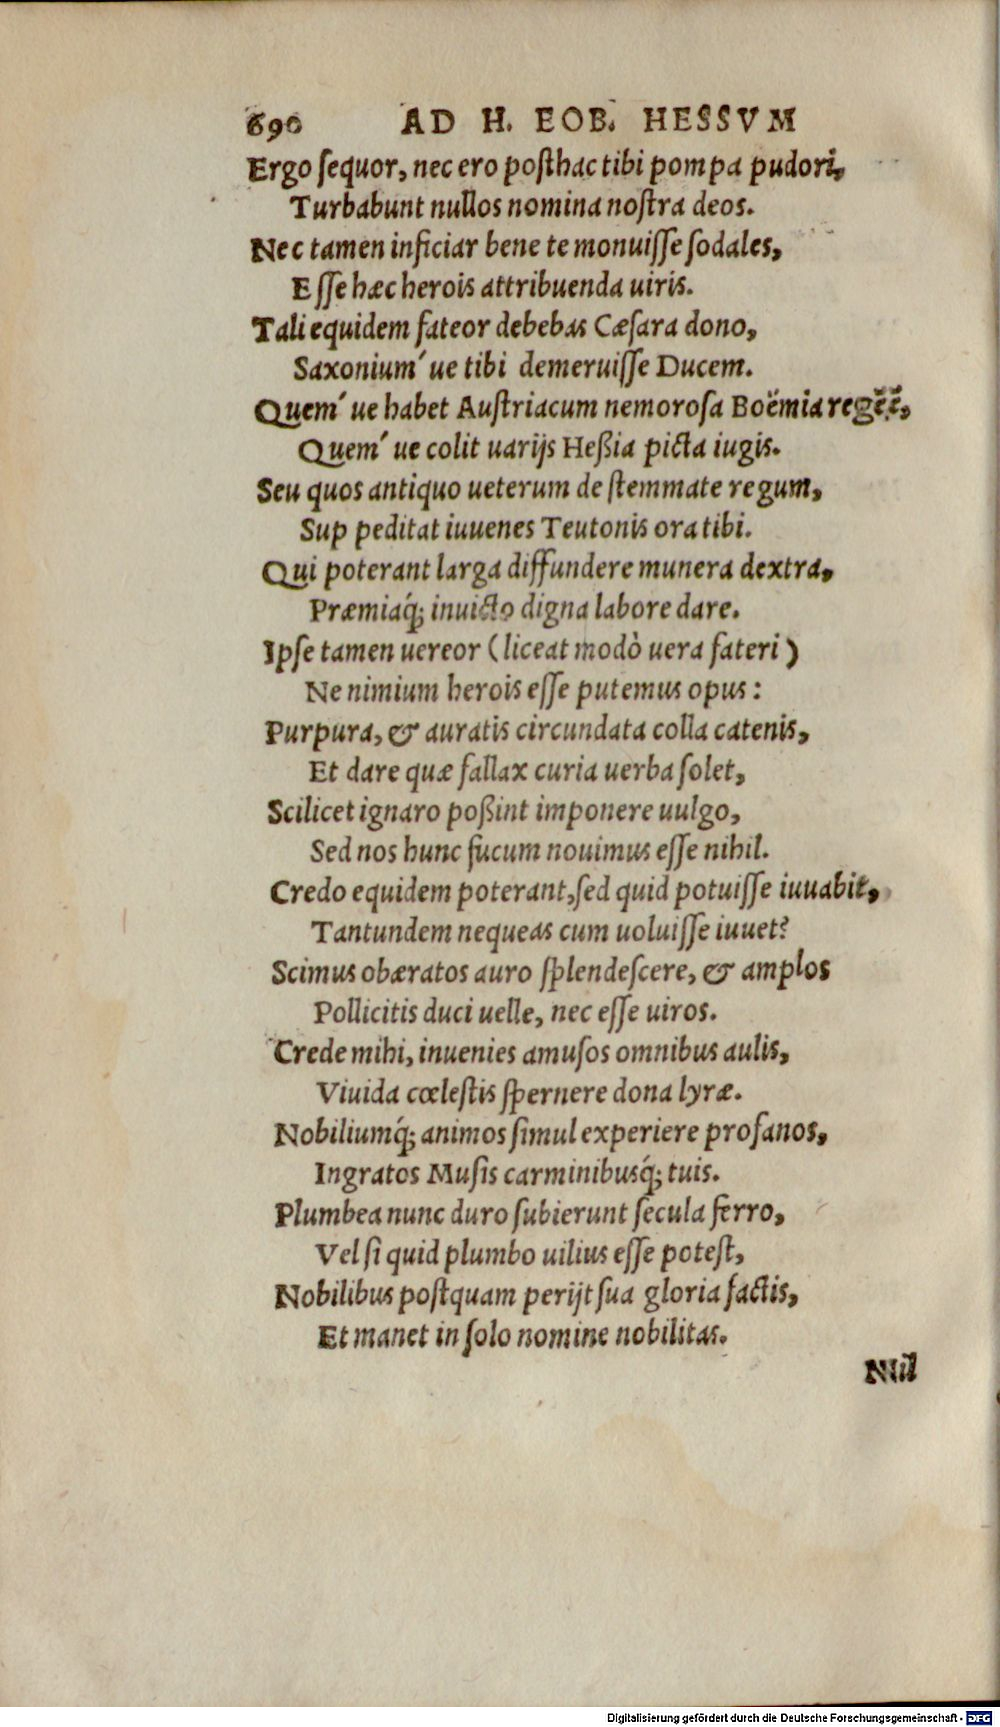 690 AD H. EOB. HESSVM
Ergo ſequor, nec ero poſthac tibi pompa pudori,
Turbabunt nullos nomina noſtra deos.
Nec tamen inficiar bene te monuiſſe ſodales,
Eſſe hæc herois attribuenda uiris.
Tali equidem fateor debebas Cæſara dono,
Saxonium´ue tibi demeruiſſe Ducem.
Quem´ue habet Auſtriacum nemoroſa Boëmia regẽ,
Quem´ue colit uarijs Heßia picta iugis.
Seu quos antiquo ueterum de ſtemmate regum,
Suppeditat iuuenes Teutonis ora tibi.
Qui poterant larga diffundere munera dextra,
Præmiaq́; inuicto digna labore dare.
Ipſe tamen uereor (liceat modò uera fateri)
Ne nimium herois eſſe putemus opus:
Purpura, & auratis circundata colla catenis,
Et dare quæ fallax curia uerba ſolet,
Scilicet ignaro poßint imponere uulgo,
Sed nos hunc fucum nouimus eſſe nihil.
Credo equidem poterant, ſed quid potuiſſe iuuabit,
Tantundem nequeas cum uoluiſſe iuuet?
Scimus obæratos auro ſplendeſcere, & amplos
Pollicitis duci uelle, nec eſſe uiros.
Crede mihi, inuenies amuſos omnibus aulis,
Viuida cœleſtis ſpernere dona lyræ.
Nobiliumq́; animos ſimul experiere profanos,
Ingratos Muſis carminibusq́; tuis.
Plumbea nunc duro ſubierunt ſecula ferro,
Vel ſi quid plumbo uilius eſſe poteſt,
Nobilibus poſtquam perijt ſua gloria factis,
Et manet in ſolo nomine nobilitas.
Nil
Digitalisierung gefördert durch die Deutsche Forschungsgemeinschaft - DFG